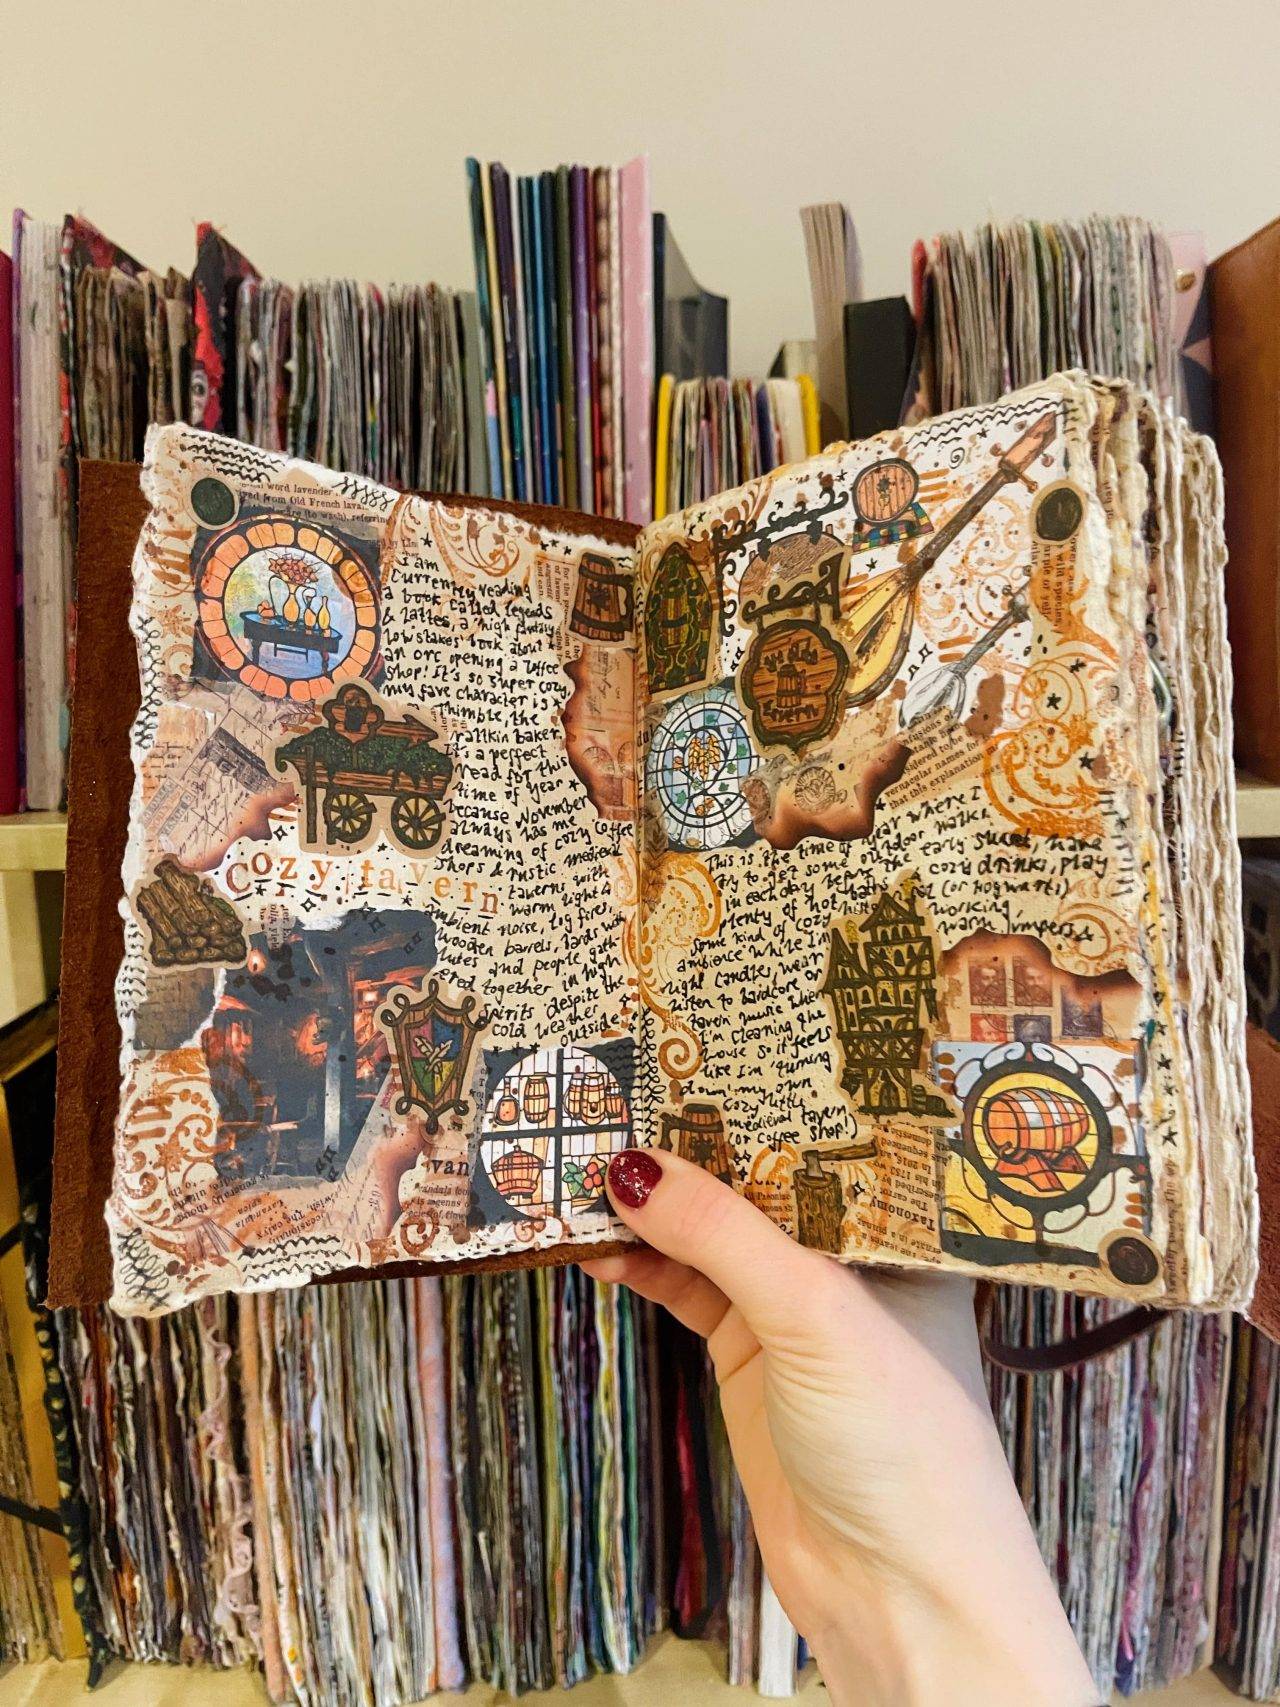 word lavender
ved from Old French lava
(to wash), referrin
I am
Currently reading
a book called Legends
& Lattes, a 'high fantasy
low stakes' book about
an orc opening a coffee
shop! It's so super cozy,
my fave character is
Thimble, the
rattkin baker.
It's a perfect
read for this
time of year
because November
always has me
dreaming of cozy coffee
shops & rustic medieval
taverns with
warm lights
ambient noise, log fires,
wooden barrels, bards with
lutes and people gath-
ered together in high
spirits despite the
cold weather
outside.
Cozy tavern
van
Ye Olde
Tavern
vernacular names for
that this explanation
This is the time of year where I
try to get some outdoor walks
in each day before the early sunset, have
plenty of hot baths, cozy drinks, play
some kind of cozy
(or Hogwarts)
ambience while I'm
working,
light candles, wear
warm jumpers &
listen to bardcore or
tavern music when
I'm cleaning the
house so it feels
like I'm 'running'
my own
cozy little
medieval tavern
(or coffee shop!)
Taxonomy